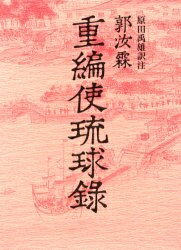 原田禹雄訳注
郭汝霖
重編使琉球錄